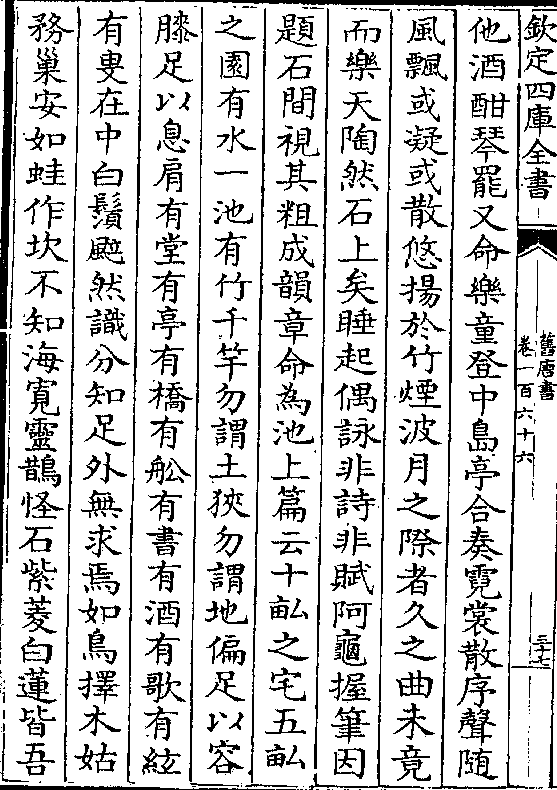 欽定四庫全書
舊唐書
卷一百六十六
三十七
他酒酣琴罷又命樂童登中島亭合奏霓裳散序聲隨
風飄或凝或散悠揚於竹煙波月之際者久之曲未竟
而樂天陶然石上矣睡起偶詠非詩非賦阿龜握筆因
題石間視其粗成韻章命為池上篇云十畝之宅五畝
之園有水一池有竹千竿勿謂土狹勿謂地偏足以容
膝足以息肩有堂有亭有橋有舩有書有酒有歌有絃
有叟在中白鬚颯然識分知足外無求焉如鳥擇木姑
務巢安如蛙作坎不知海寛靈鵲怪石紫菱白蓮皆吾